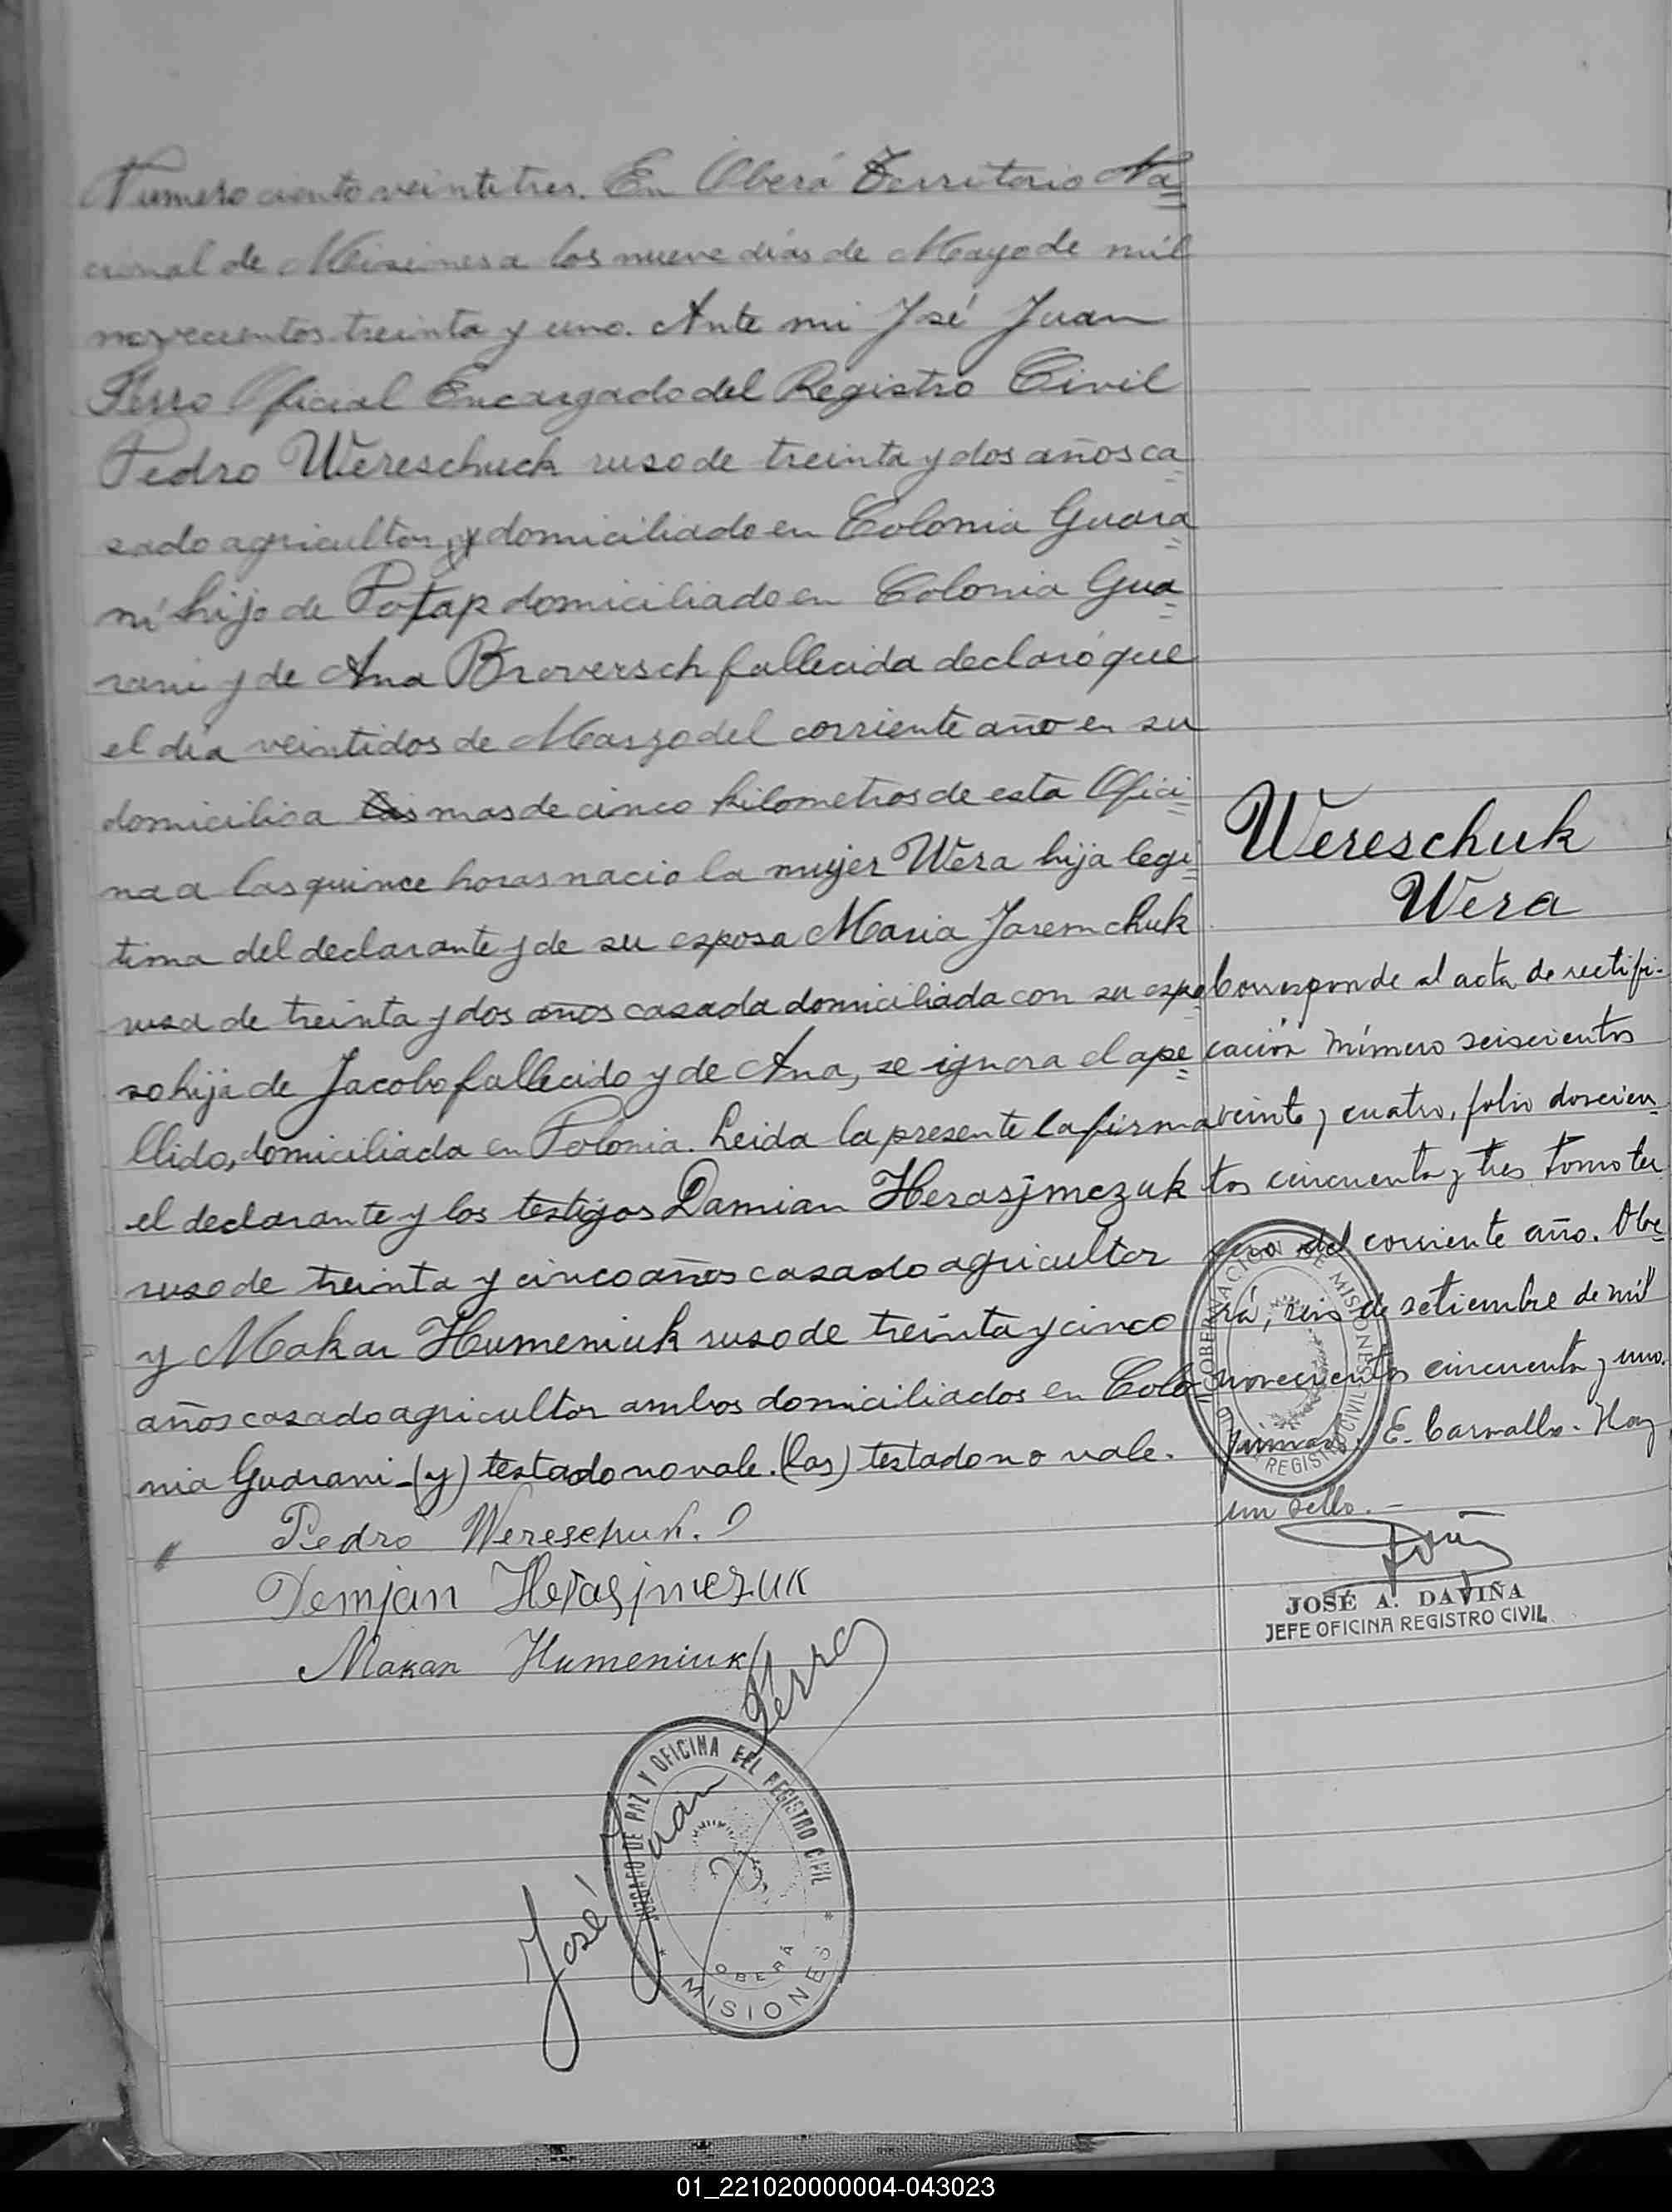 Numero ciento veintitres. En Oberá Territorio Na=
cional de Misiones a los nueve dias de Mayo de mil
novecientos treinta y uno. Ante mi José Juan
Ferro Oficial Encargado del Registro Civil
Pedro Wereschuck ruso de treinta y dos años ca=
sado agricultor y domiciliado en Colonia Guara=
ní hijo de Potap domiciliado en Colonia Gua=
rani y de Ana Broversch fallecida declaró que
el dia veintidos de Marzo del corriente año en su
domicilio a las mas de cinco kilometros de esta Ofici=
na a las quince horas nacio la mujer Wera hija legi=
tima del declarante y de su esposa Maria Jaremchuk
rusa de treinta y dos años casada domiciliada con su espo
so hija de Jacobo fallecido y de Ana, se ignora el ape=
llido, domiciliada en Polonia. Leida la presente la firma
el declarante y los testigos Damian Herasjmczuk
ruso de treinta y cinco años casado agricultor
y Makar Humeniuk ruso de treinta y cinco
años casado agricultor ambos domiciliados en Colo
nia Guarani-(y) testado no vale. (las) testado no vale.
Pedro Wereschuk.
Demjan Herasjmczuk
Makar Humeniuk
José Juan Ferro
JUZGADO DE PAZ Y OFICINA DEL REGISTRO CIVIL
OBERÁ
* MISIONES *
Wereschuk
Wera
Corresponde al acta de rectifi-
cación número seiscientos
veinte y cuatro, folio doscien-
tos cincuenta y tres tomo ter
cero del corriente año. Obe=
rá, seis de setiembre de mil
novecientos cincuenta y uno.
Firmado: E. Carvallo. Hay
un sello.-
GOBERNACIÓN DE MISIONES
REGISTRO CIVIL
JOSÉ A. DAVIÑA
JEFE OFICINA REGISTRO CIVIL
01_221020000004-043023